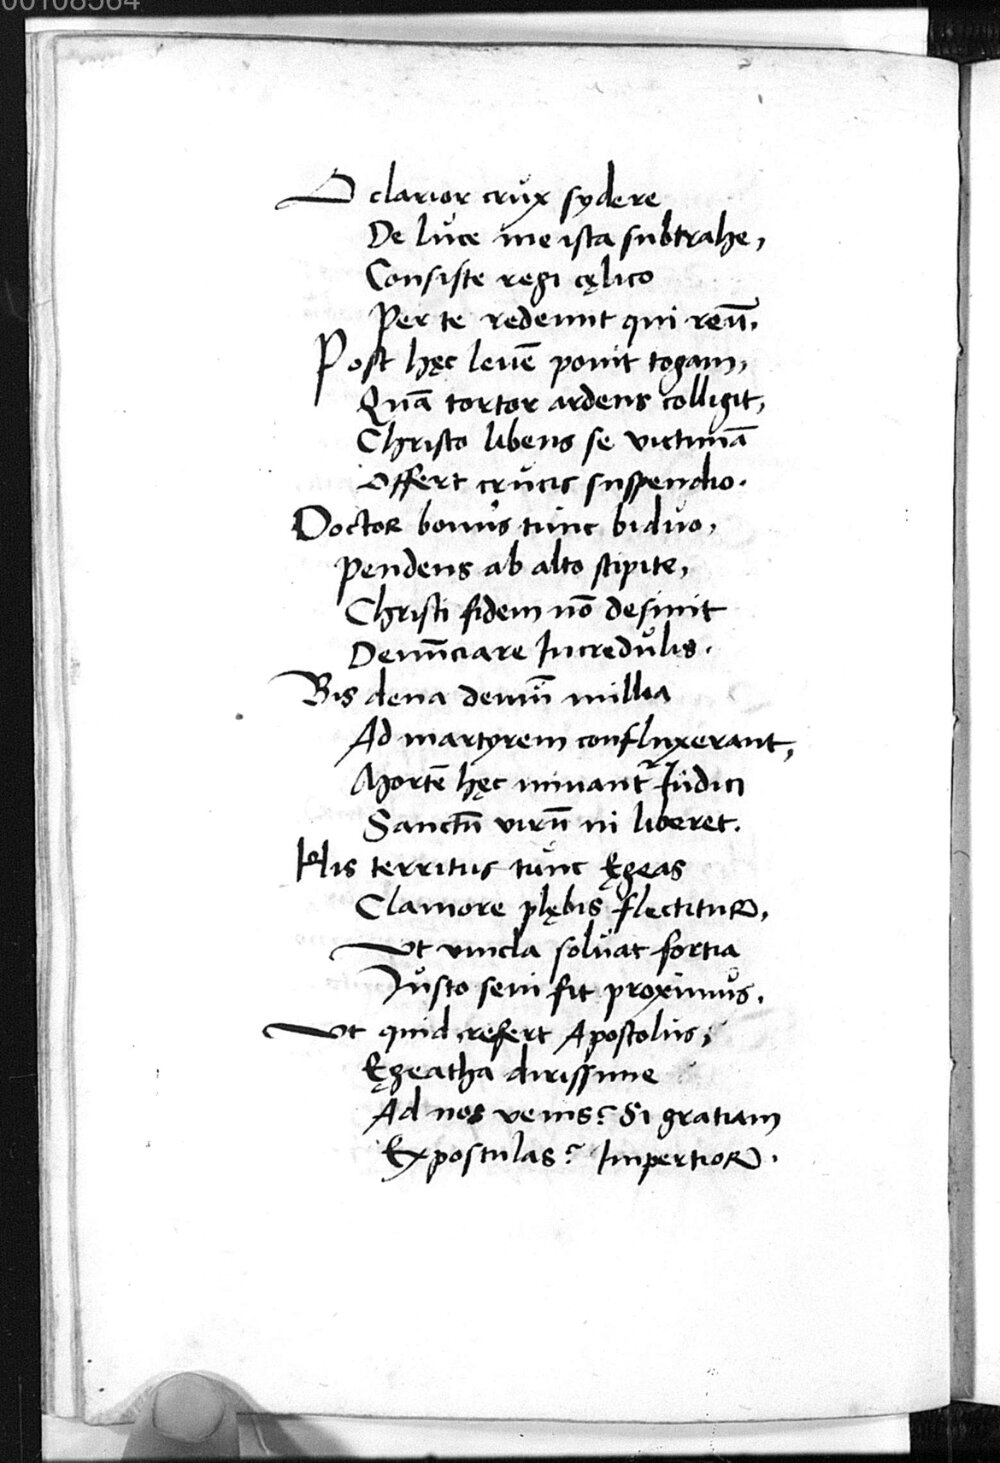 00108564
O clarior crux sydere
De luce me ista subtrahe,
Consiste regi cęlico
Per te redemit qui reū.
Post hęc leuē ponit togam,
Quā tortor ardens colligit,
Christo libens se victimā
Offert crucis suspendio.
Doctor bonus tunc biduo,
Pendens ab alto stipite,
Christi fidem nō desinit
Denūciare Incredulis.
Bis dena demū millia
Ad martyrem confluxerant,
Mortē hęc minant Iudici
Sanctū virū ni liberet.
His territus tunc Ęgeas
Clamore plębis flectitur,
Vt vincla soluat fortia
Iusto seni fit proximus.
Vt quid, refert Apostolus,
Ęgeatha dirissime
Ad nos venis? Si gratiam
Expostulas? Impertior.